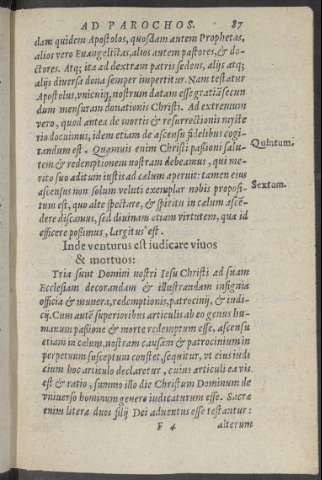 AD PAROCHOS. 87
dam quidem Apostolos, quosdam autem Prophetas,
alios vero Euangelistas, alios autem pastores, & do-
ctores. Atq; ita ad dextram patris sedens, alijs atq;
alijs diuersa dona semper impertitur. Nam testatur
Apostolus, vnicuiq; nostrum datam esse gratiã secun
dum mensuram donationis Christi. Ad extremum
vero, quod antea de mortis & resurrectionis myste
rio docuimus, idem etiam de ascensu fidelibus cogi-
tandum est. Quamuis enim Christi passioni salu-
tem & redemptionem nostram debeamus, qui me-
rito suo aditum iustis ad cælum aperuit: tamen eius
ascensus non solum veluti exemplar nobis proposi-
tum est, quo alte spectare, & spiritu in cælum ascẽ-
dere discamus, sed diuinam etiam virtutem, qua id
efficere possimus, largitus est.
Quintum.
Sextum.
Inde venturus est iudicare viuos
& mortuos:
Tria sunt Domini nostri Iesu Christi ad suam
Ecclesiam decorandam & illustrandam insignia
officia & munera, redemptionis, patrocinij, & iudi-
cij. Cum autẽ superioribus articulis ab eo genus hu-
manum passione & morte redemptum esse, ascensu
etiam in cælum, nostram causam & patrocinium in
perpetuum susceptum constet, sequitur, vt eius iudi
cium hoc articulo declaretur, cuius articuli ea vis
est & ratio, summo illo die Christum Dominum de
vniuerso hominum genere iudicaturum esse. Sacræ
enim literæ duos filij Dei aduentus esse testantur:
F 4 alterum